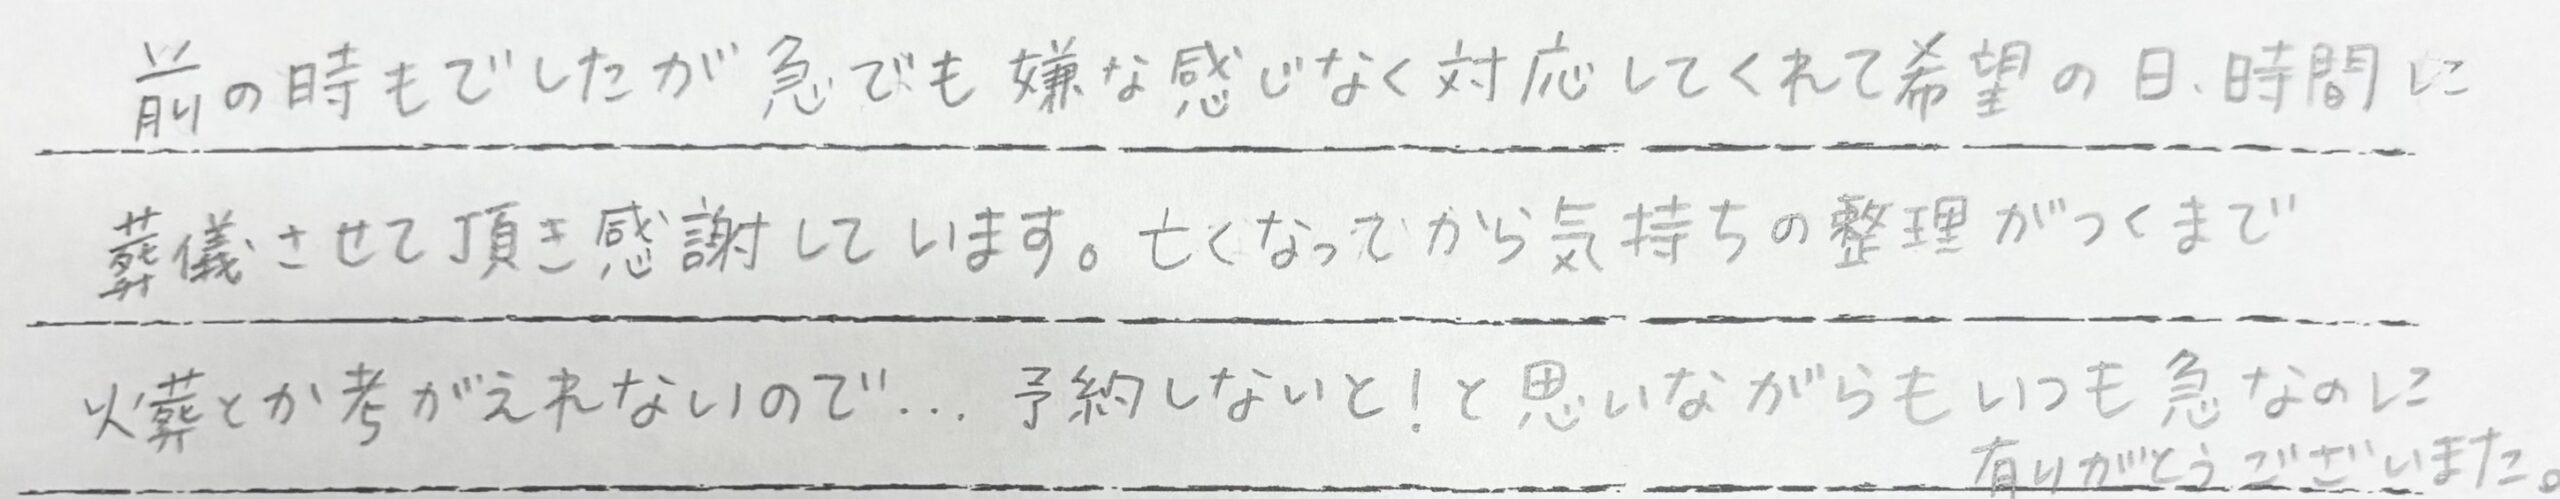 前の時もでしたが急でも嫌な感じなく対応してくれて希望の日、時間に
葬儀させて頂き感謝しています。亡くなってから気持ちの整理がつくまで
火葬とか考がえれないので… 予約しないと！と思いながらもいつも急なのに
有りがとうございまた。